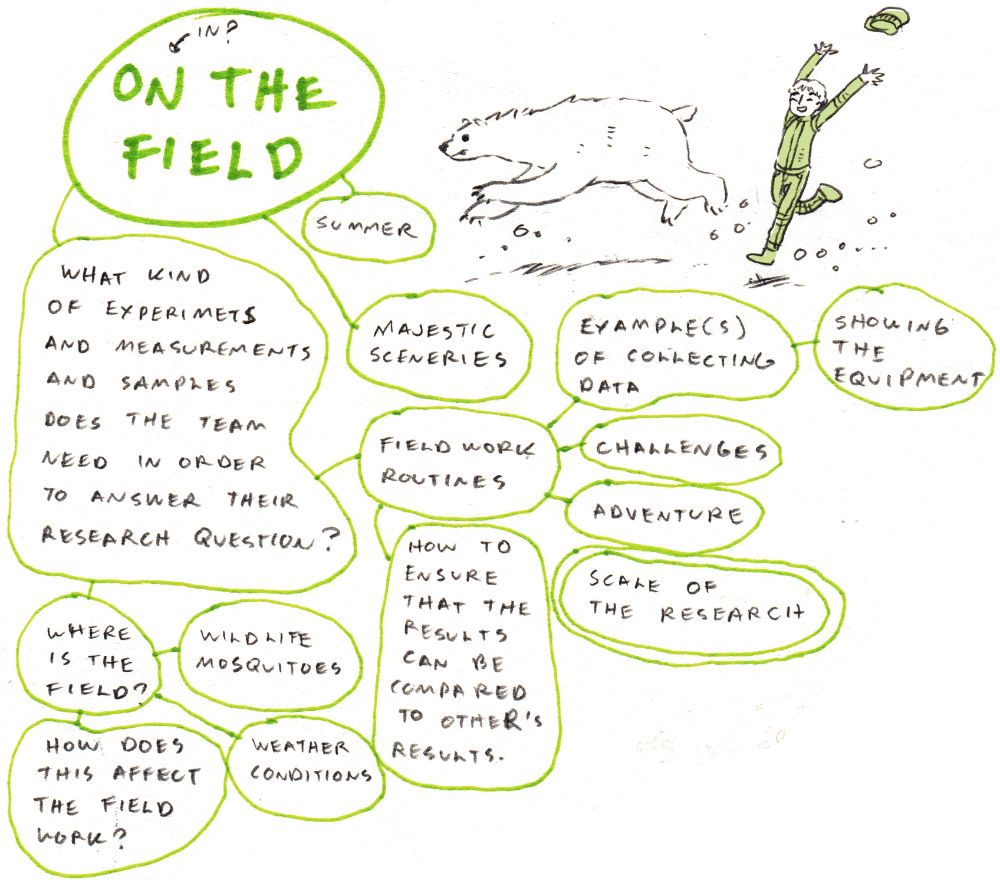 IN?
ON THE
FIELD
SUMMER
WHAT KIND
OF EXPERIMETS
AND MEASUREMENTS
AND SAMPLES
DOES THE TEAM
NEED IN ORDER
TO ANSWER THEIR
RESEARCH QUESTION?
MAJESTIC
SCENERIES
EXAMPLE(S)
OF COLLECTING
DATA
SHOWING
THE
EQUIPMENT
FIELD WORK
ROUTINES
CHALLENGES
ADVENTURE
SCALE OF
THE RESEARCH
HOW TO
ENSURE
THAT THE
RESULTS
CAN BE
COMPARED
TO OTHER'S
RESULTS.
WHERE
IS THE
FIELD?
WILDLIFE
MOSQUITOES
WEATHER
CONDITIONS
HOW DOES
THIS AFFECT
THE FIELD
WORK?